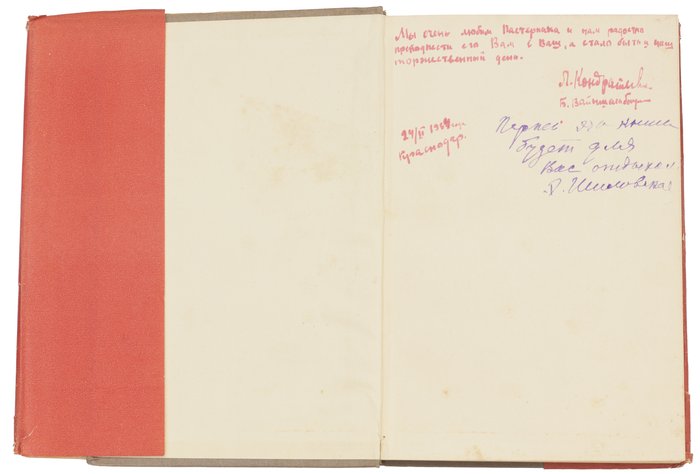 Мы очень любим Пастернака и нам радостно
преподнести его Вам в Ваш, а стало быть и наш
торжественный день.
Л. Кондрашова
Б. Вайнштейн
24/II 1964 года
Краснодар.
Пусть эта книга
будет для
Вас отдыхом.